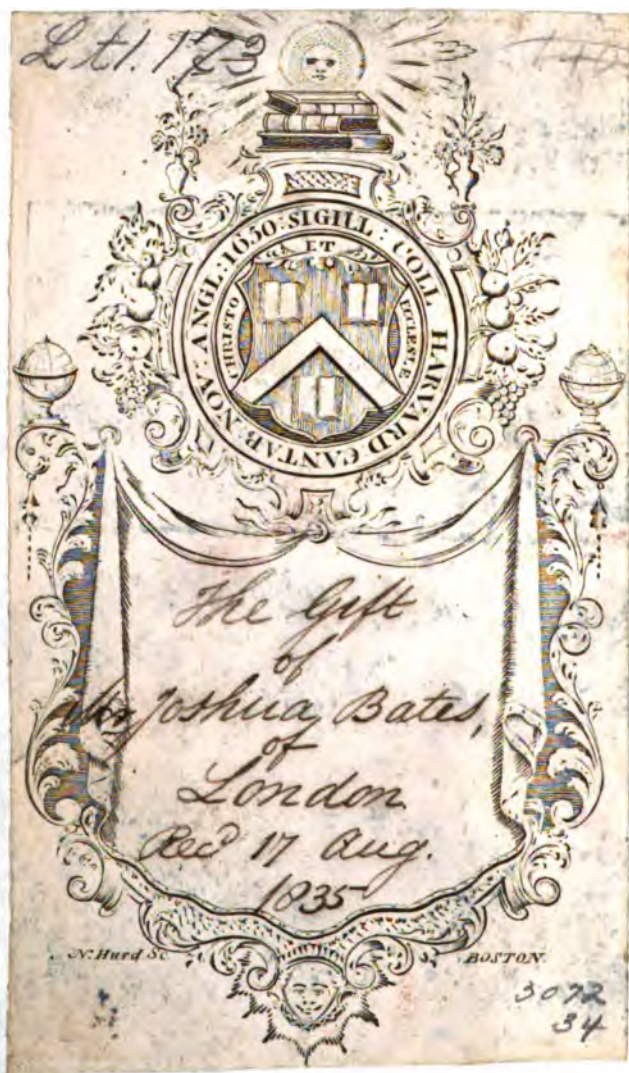 Lt1.173
SIGILL: COLL HARVARD CANTAB: NOV: ANGL: 1650:
CHRISTO ET ECCLESIÆ
The Gift
of
Mr Joshua Bates,
of
London.
Recd 17 Aug.
1835
N. Hurd Sc
BOSTON.
3072
34